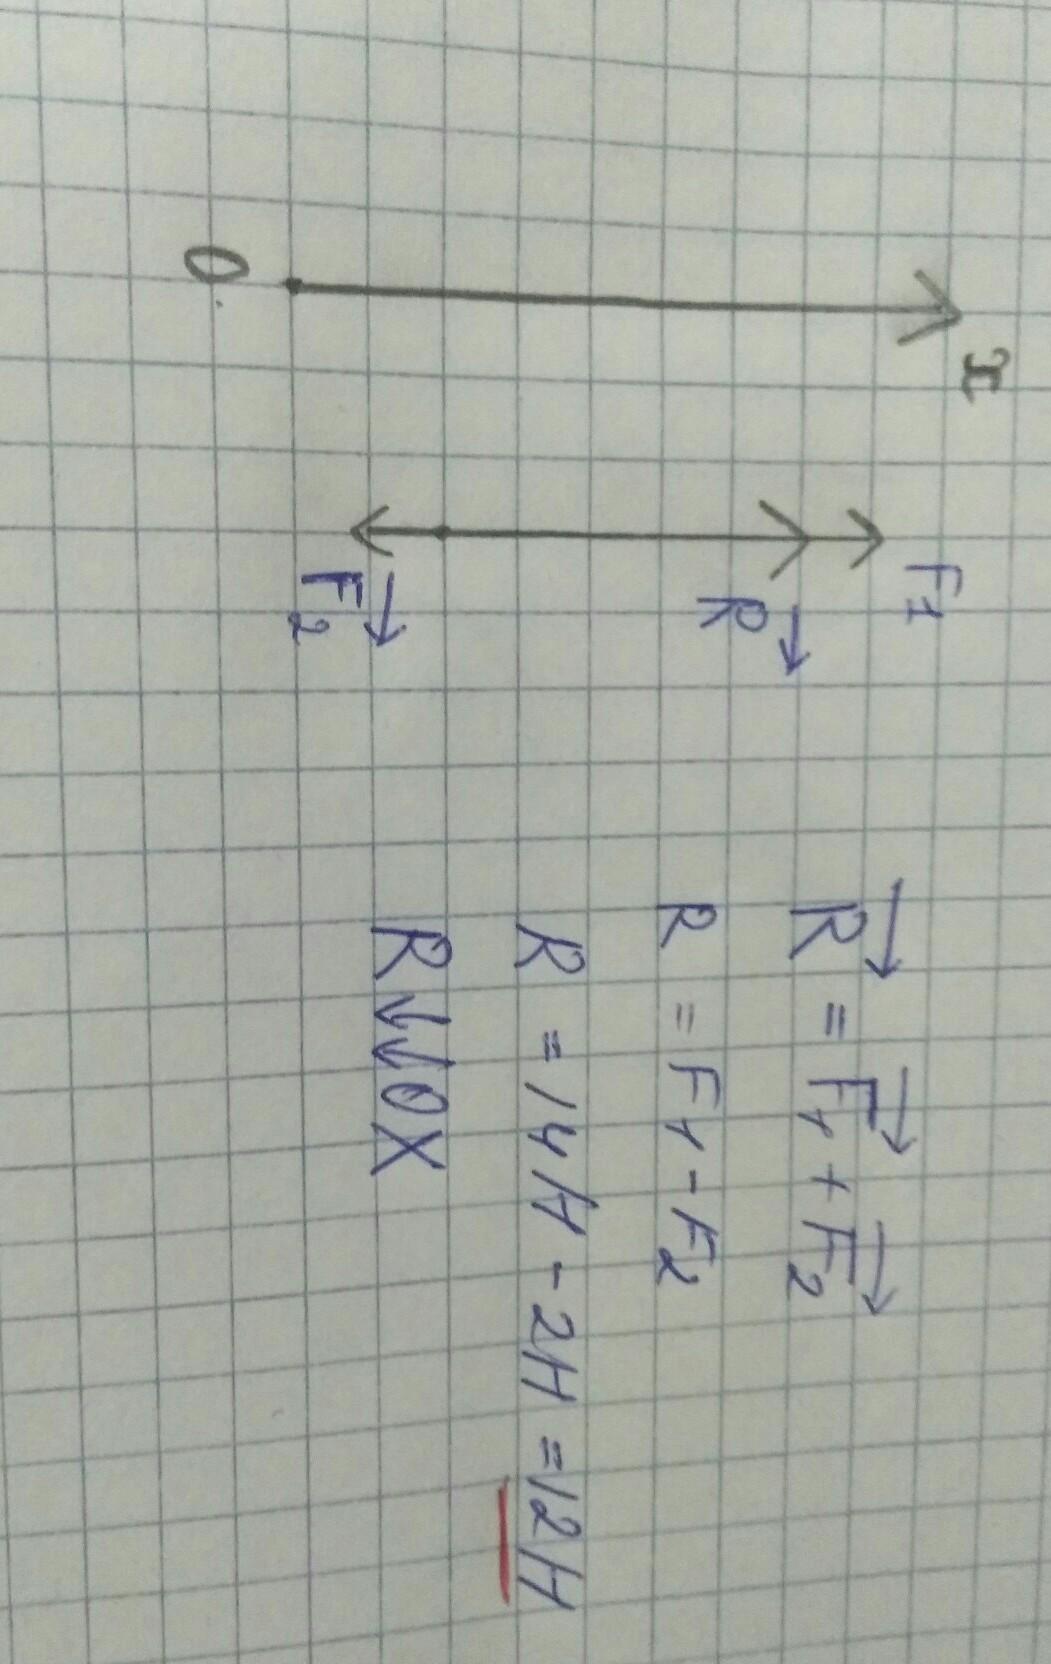 x
F1
R⃗
F⃗2
O
R⃗ = F⃗1 + F⃗2
R = F1 - F2
R = 14Н - 2Н = 12Н
R↓↓OX